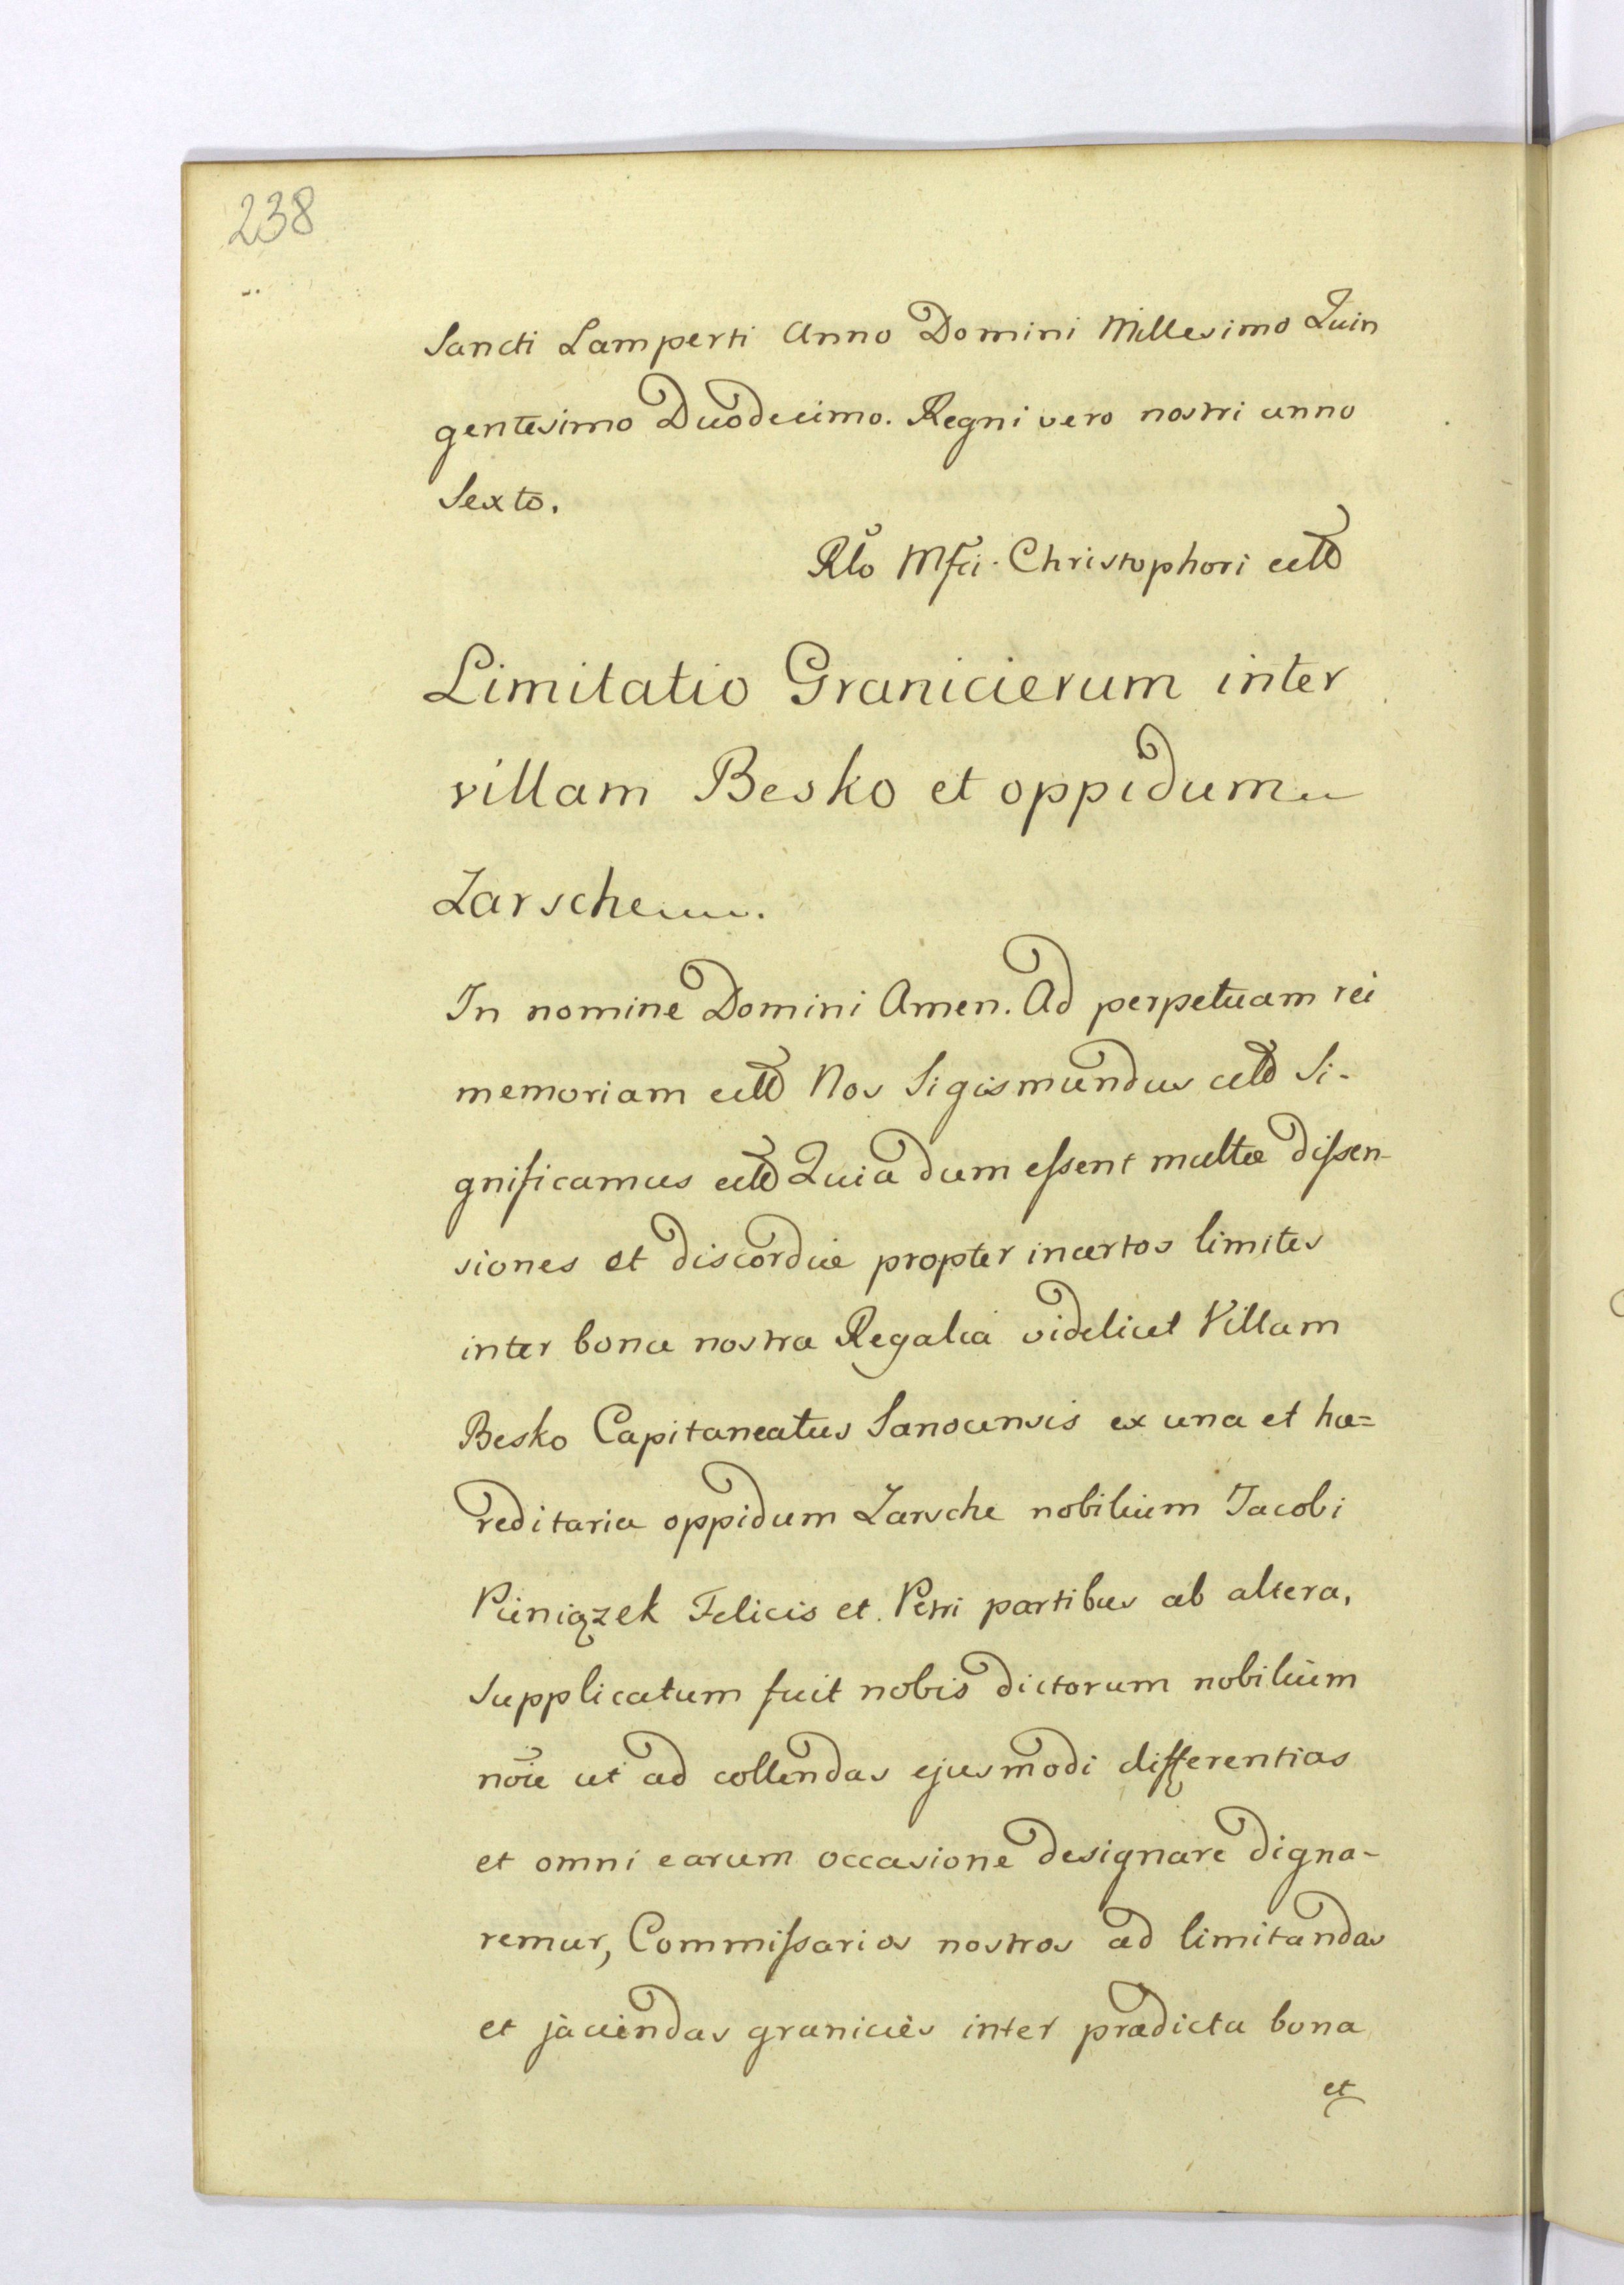 238
Sancti Lamperti Anno Domini Millesimo Quin
gentesimo Duodecimo. Regni vero nostri anno
Sexto.
Rlo Mfci. Christophori
Limitatio Granicierum inter
villam Besko et oppidum
Zarsche
In nomine Domini Amen. Ad perpetuam rei
memoriam Nos Sigismundus Si-
gnificamus Quia dum essent multæ dissen-
siones et discordiæ propter incertos limites
inter bona nostra Regalia videlicet Villam
Besko Capitaneatus Sanocensis ex una et hæ=
reditaria oppidum Zarsche nobilium Jacobi
Pieniązek Felicis et Petri partibus ab altera,
supplicatum fuit nobis dictorum nobilium
nõie ut ad tollendas ejusmodi differentias
et omni earum occasione designare digna-
remur, Commissarios nostros ad limitandas
et jaciendas granicies inter prædicta bona
et